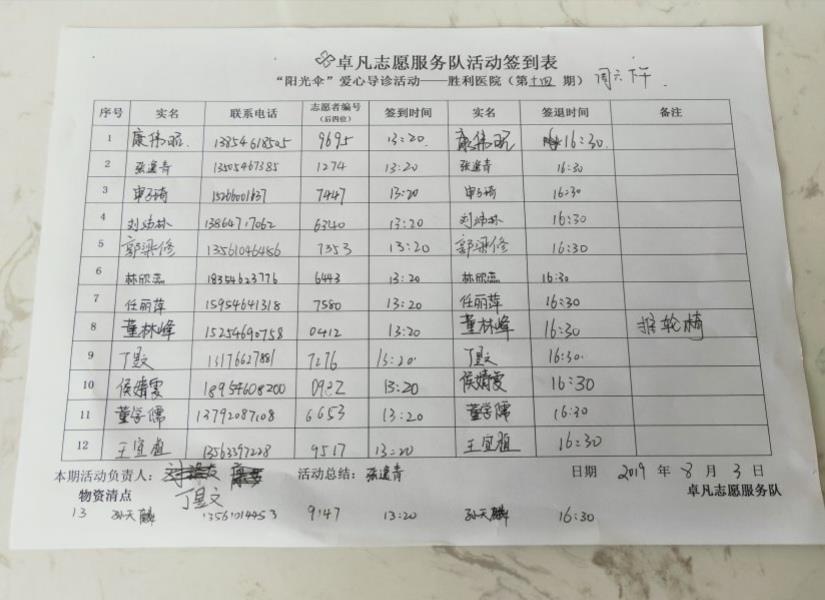 卓凡志愿服务队活动签到表
“阳光伞”爱心导诊活动——胜利医院（第十四期）周六下午.
序号 实名 联系电话 志愿者编号（后四位） 签到时间 实名 签退时间 备注
1 康伟昭 13854618505 9695 13:20. 康伟昭 16:30.
2 张逢青 13505467385 1274 13:20 张逢青 16:30
3 申子琦 7447 13:20 申子琦 16:30
4 13864717062 6340 13:20 16:30
5 郭梁修 13561046486 7353 13:20 郭梁修 16:30
6 林欣 18354623776 6443 13:20 林欣 16:30
7 任丽萍 15954641318 7580 13:20 任丽萍 16:30
8 董林峰 15254690758 0412 13:20 董林峰 16:30 推轮椅
9 丁昱文 7276 13:20. 丁昱文 16:30.
10 侯婧雯 18954608200 13:20 侯婧雯 16:30
11 董学儒 13792087108 6653 13:20 董学儒 16:30
12 王宜 13563397228 9517 13:20 王宜 16:30
本期活动负责人： 活动总结：张逢青 日期 2019 年 8 月 3 日
物资清点 丁昱文 卓凡志愿服务队
13 孙天麟 13561014453 9147 13:20 孙天麟 16:30